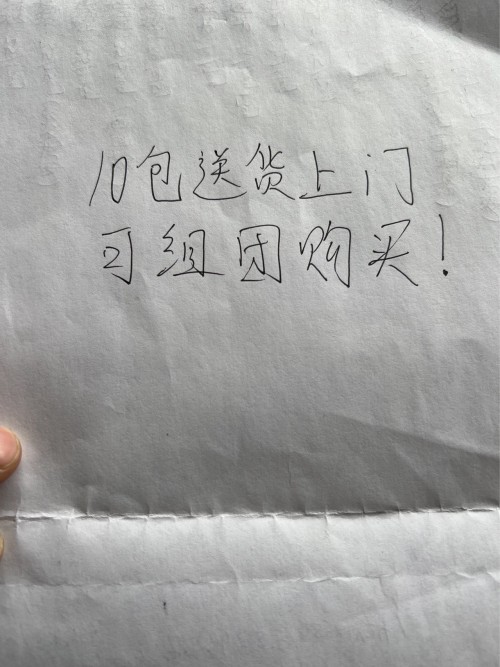 10包送货上门
可组团购买！